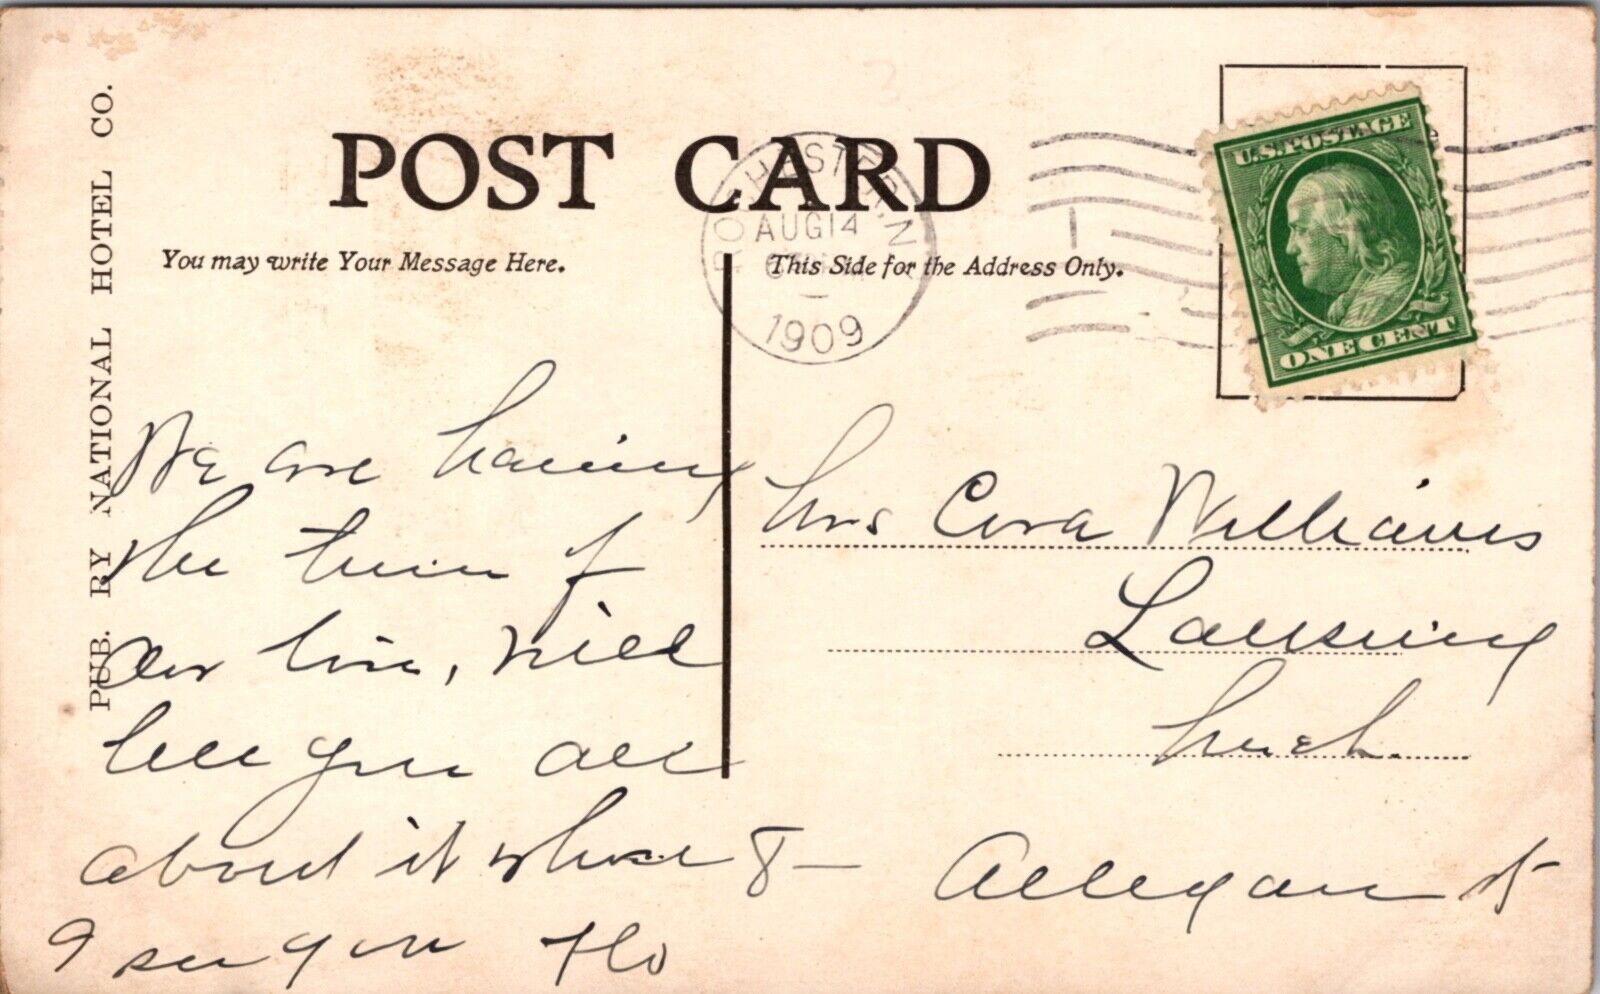 PUB. BY NATIONAL HOTEL CO.
POST CARD
You may write Your Message Here.
This Side for the Address Only.
ROCHESTER, N
AUG 14
1909
U.S. POSTAGE
ONE CENT
We are having
the time of
our live, Will
tell you all
about it when
I see you Flo
Mrs Cora Williams
Lansing
Mich.
8— Allegan st